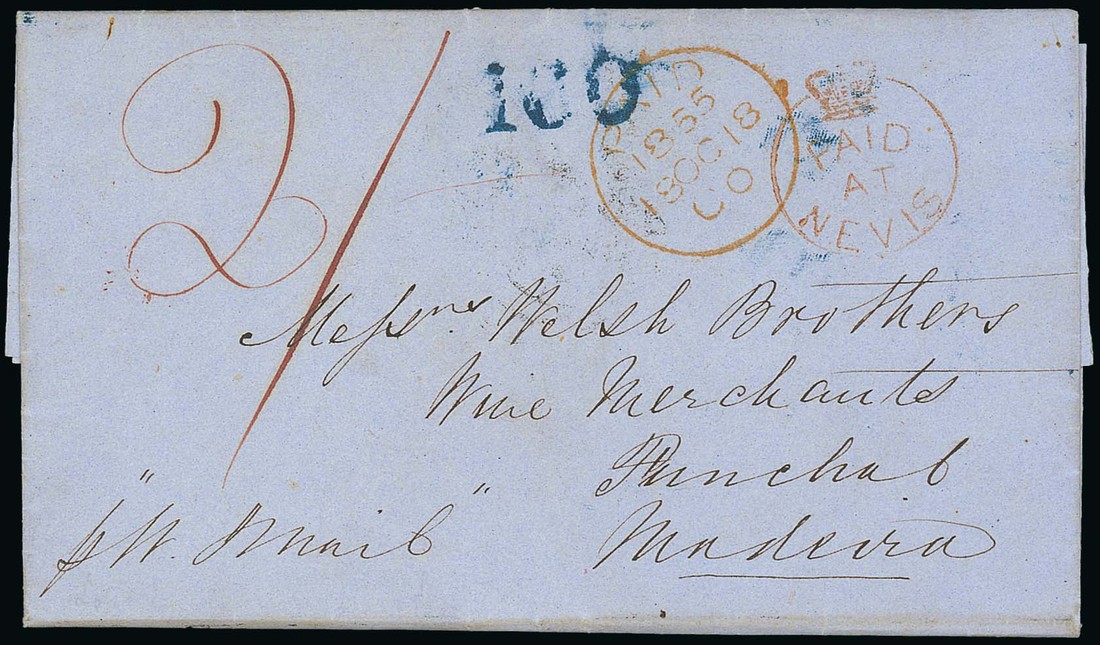 2/
160
PAID
1855
18 OC 18
PAID
AT
NEVIS
Messrs. Welsh Brothers
Wine Merchants
Funchal
Madeira
"
"
Mail